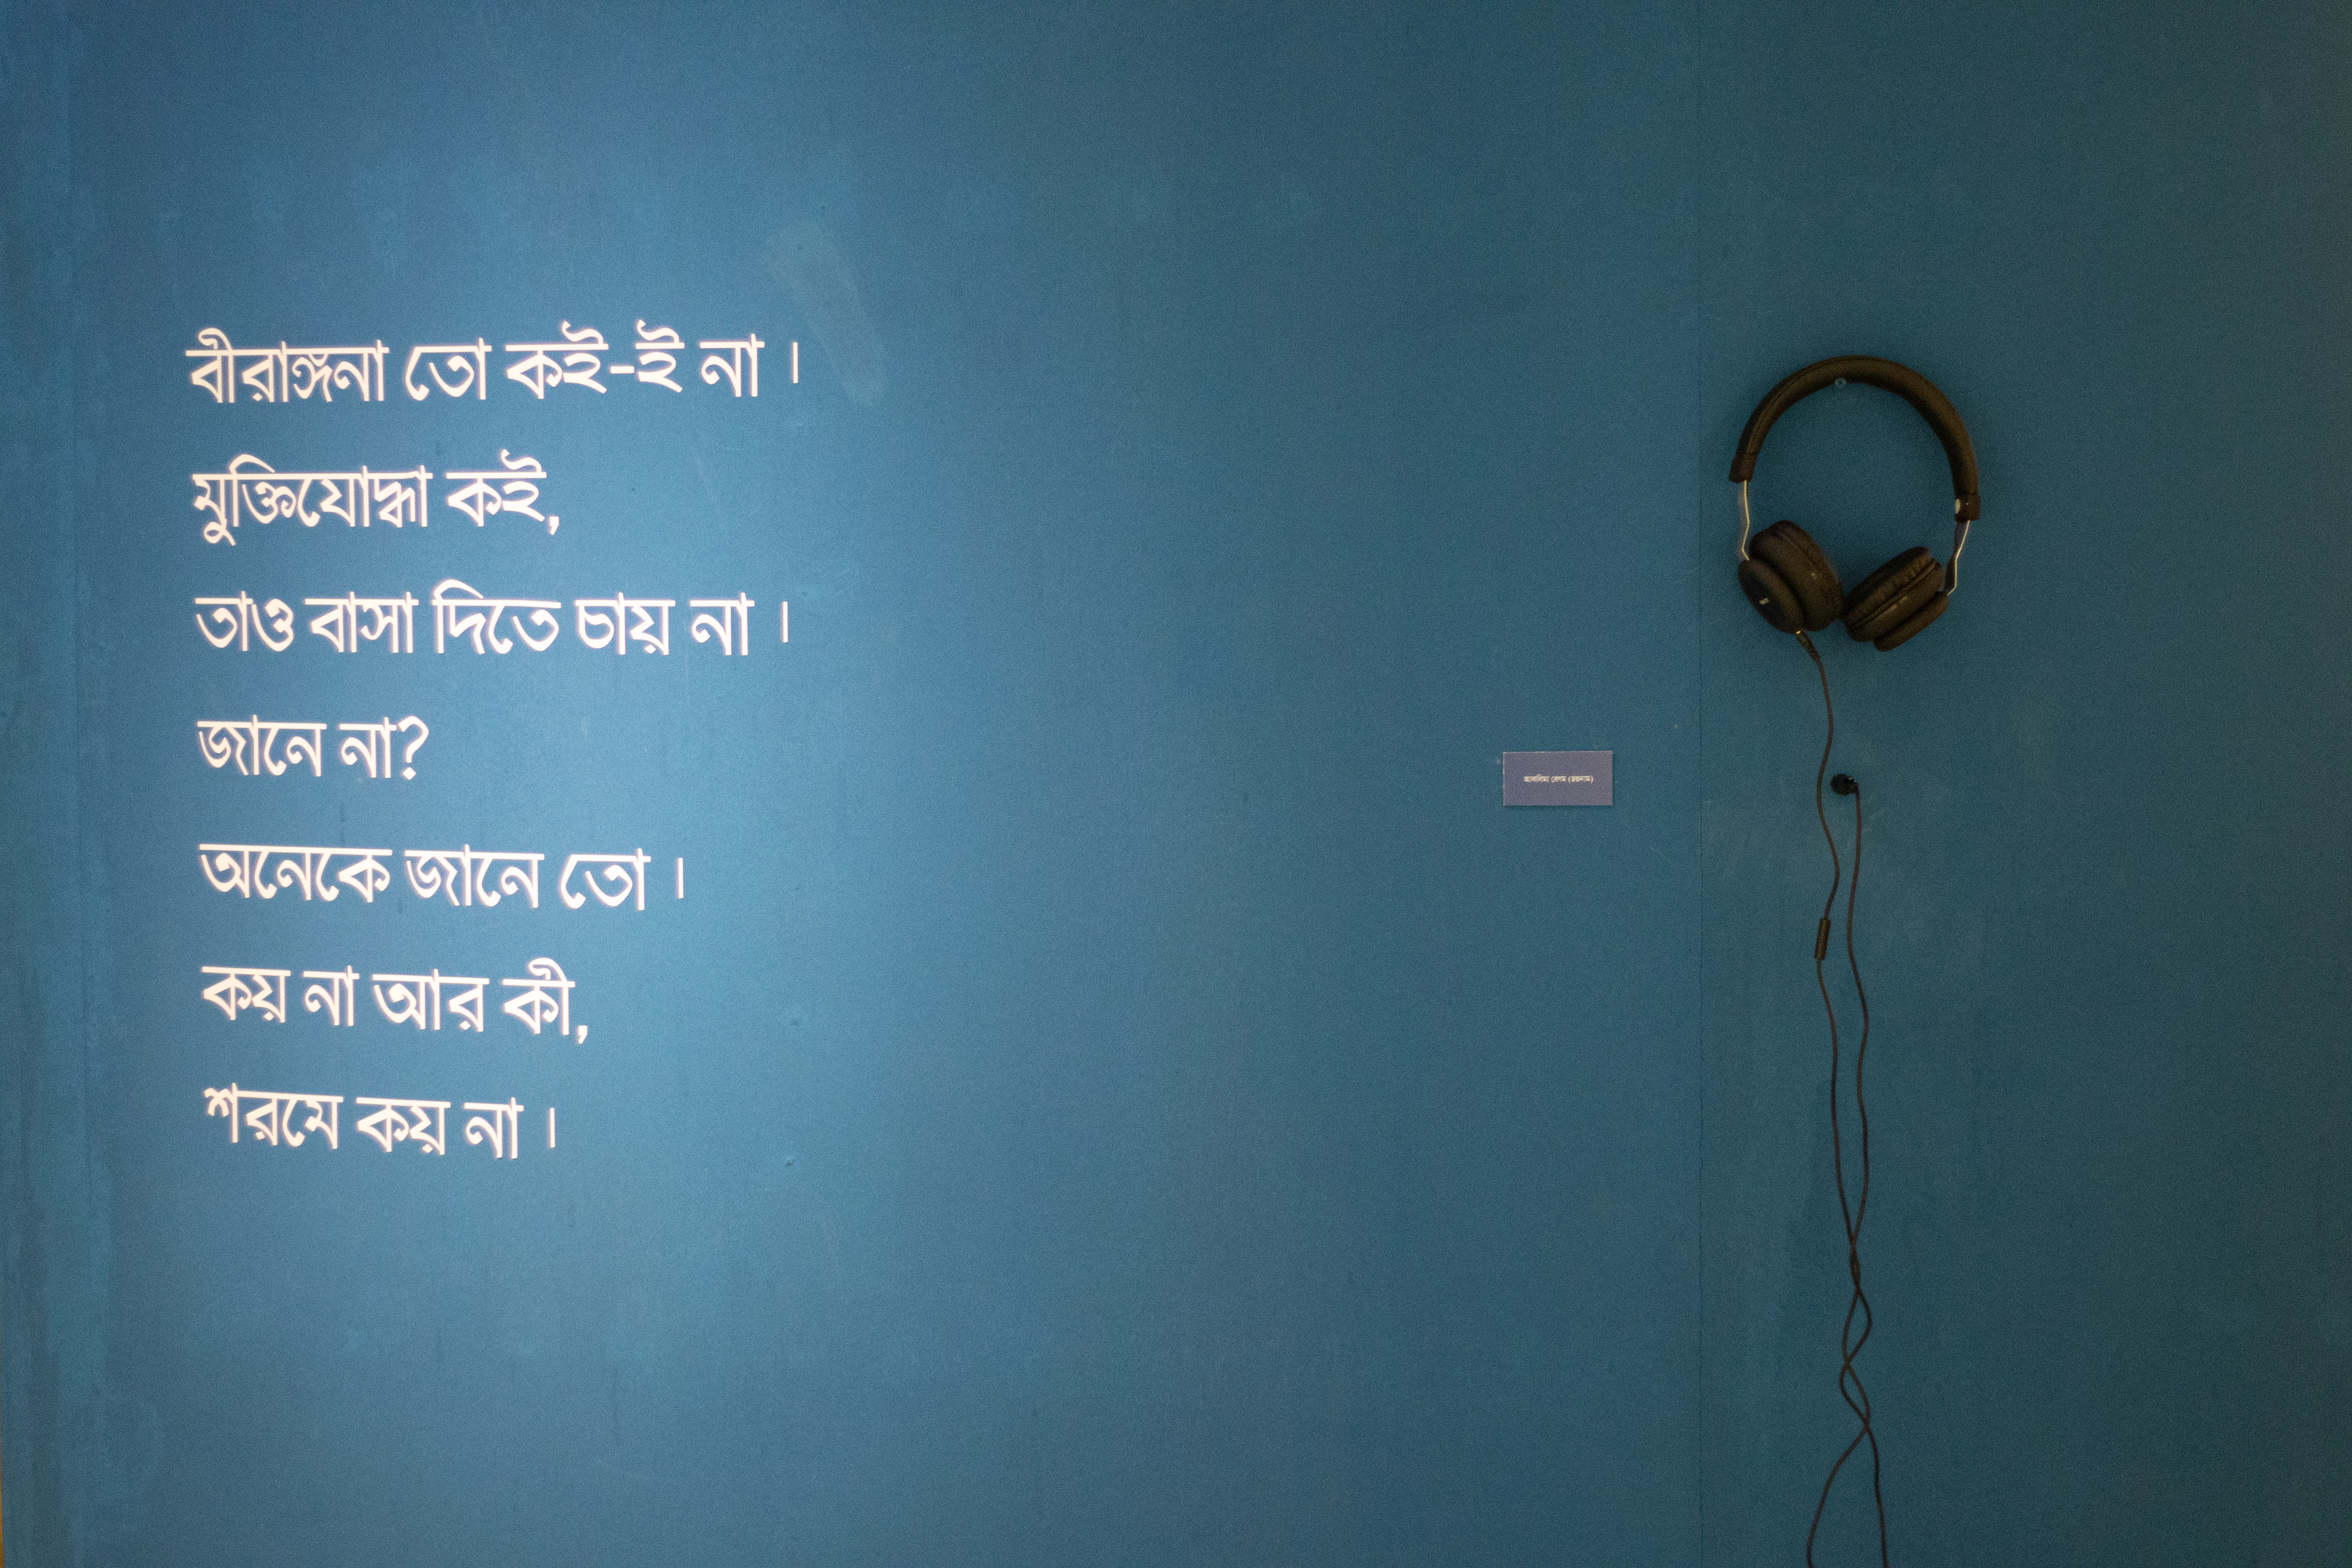 বীরাঙ্গনা তো কই-ই না ।
মুক্তিযোদ্ধা কই,
তাও বাসা দিতে চায় না ।
জানে না?
অনেকে জানে তো ।
কয় না আর কী,
শরমে কয় না ।
আকলিমা বেগম (ছদ্মনাম)